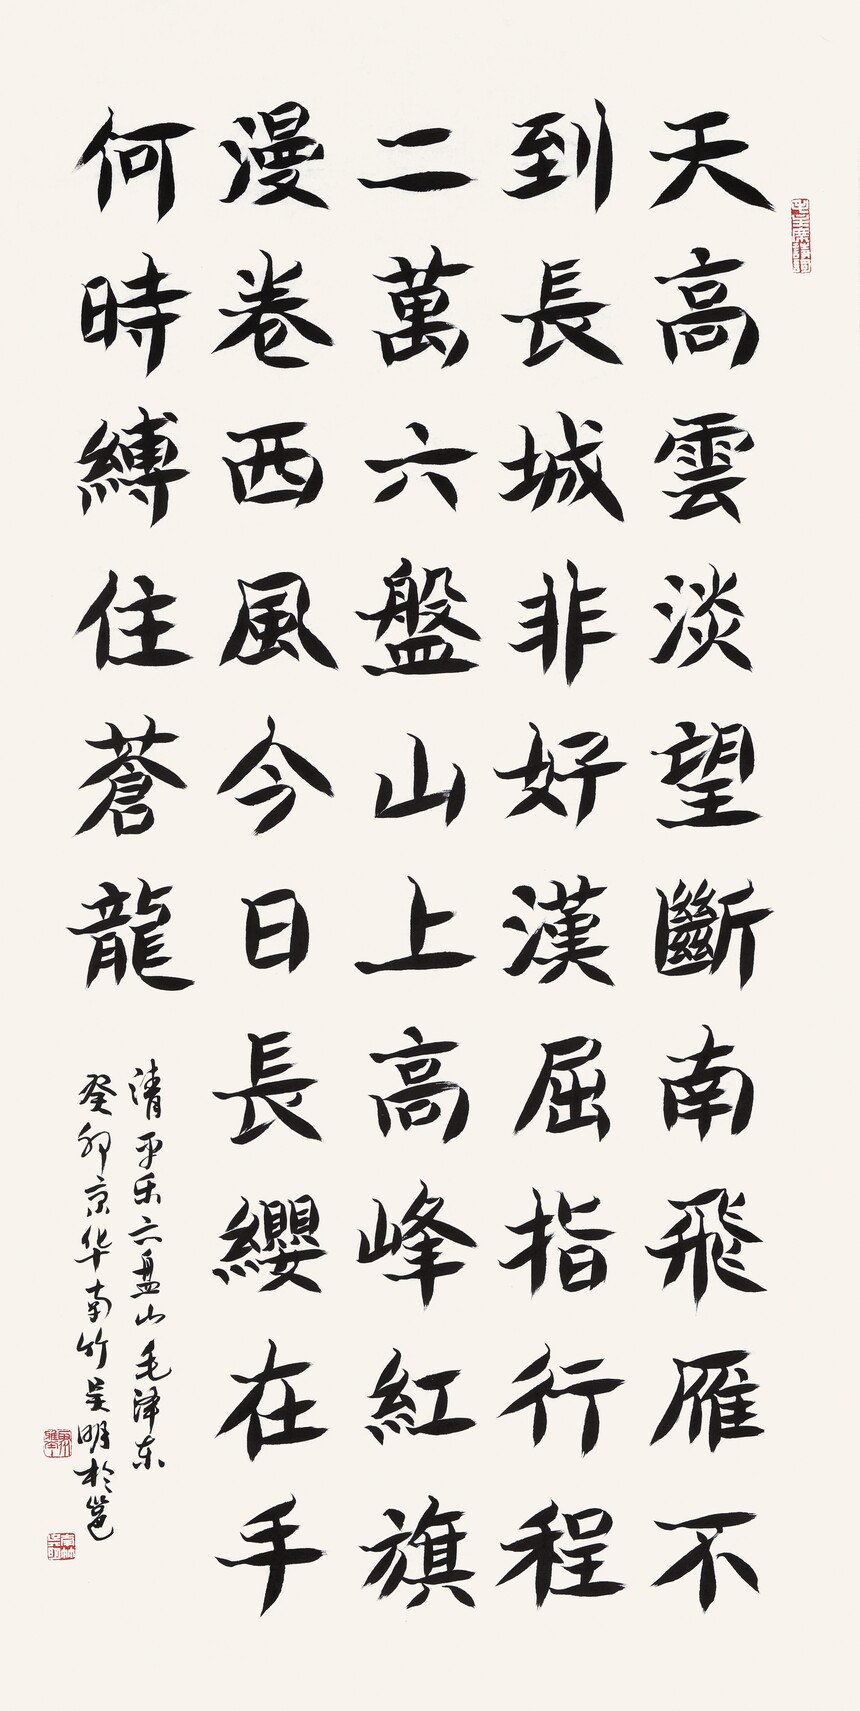 毛主席詩詞
天高雲淡望斷南飛雁不
到長城非好漢屈指行程
二萬六盤山上高峰紅旗
漫卷西風今日長纓在手
何時縛住蒼龍
清平乐六盘山毛泽东
癸卯京华南竹吴明於邕